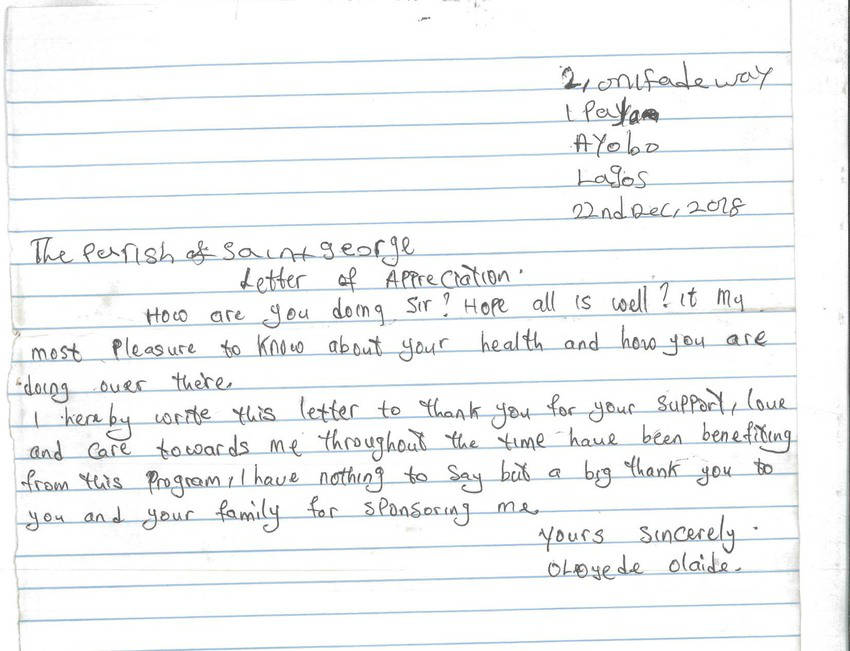 2, onifade way
Ipaya
AYobo
Lagos
22nd Dec, 2018
The Parish of Saint george
Letter of Appreciation.
How are you doing Sir? Hope all is well? it my
most pleasure to know about your health and how you are
doing over there.
I hereby write this letter to thank you for your support, love
and care towards me throughout the time have been benefiting
from this program, I have nothing to say but a big thank you to
you and your family for sponsoring me.
Yours sincerely.
Oloyede Olaide.